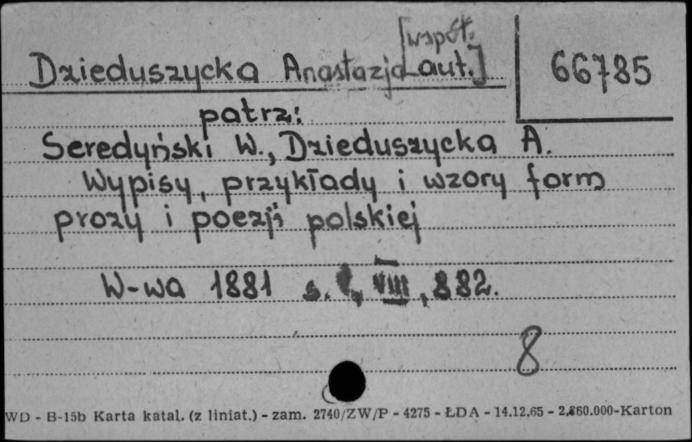 [współ.
Dzieduszycka Anastazja aut.] 66785
patrz:
Seredyński W., Dzieduszycka A.
Wypisy, przykłady i wzory form
prozy i poezji polskiej
W-wa 1881 s. VIII, 882.
8
WD - B-15b Karta katal. (z liniat.) - zam. 2740/ZW/P - 4275 - ŁDA - 14.12.65 - 2.860.000-Karton